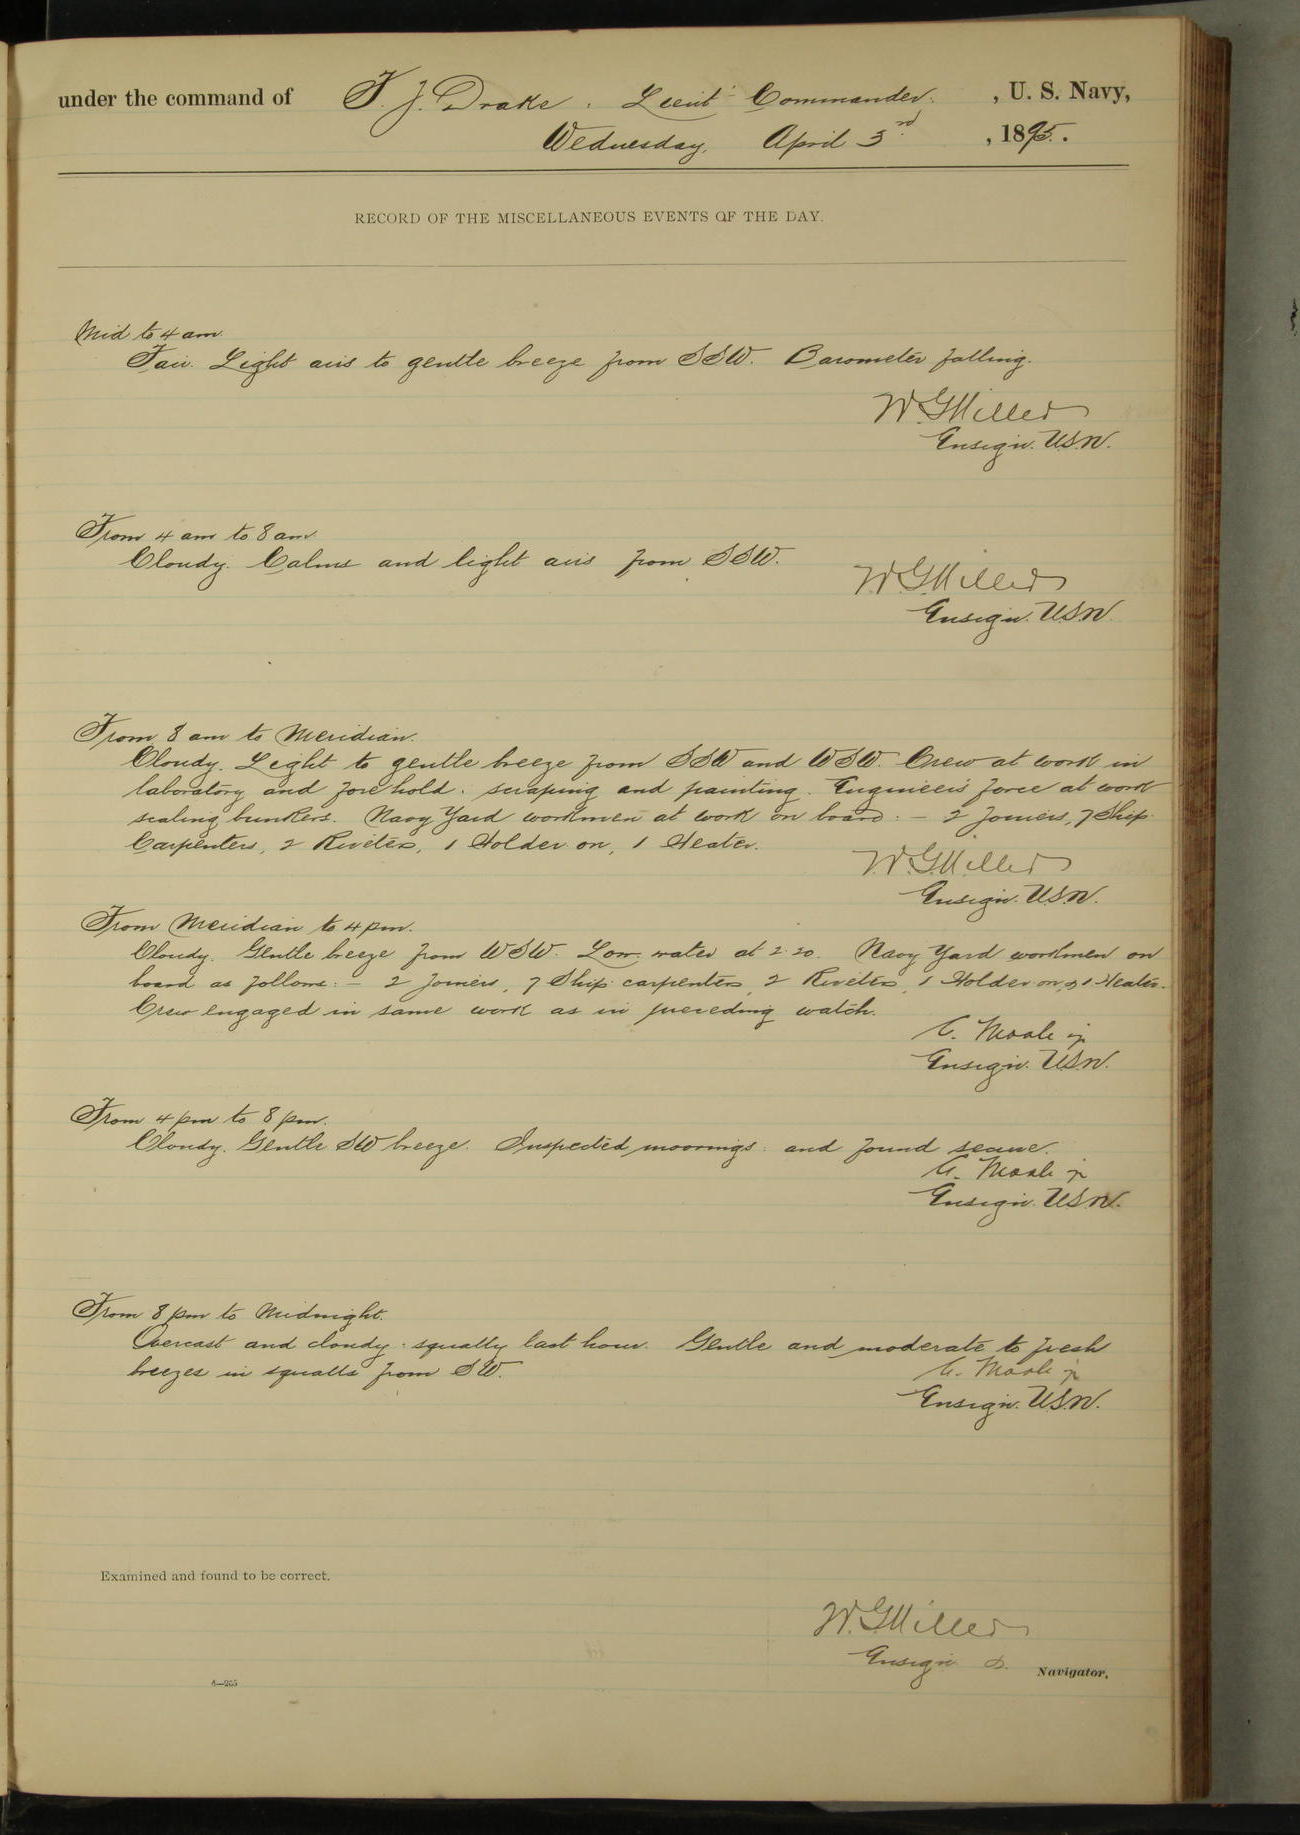 under the command of F. J. Drake, Lieut Commander, U. S. Navy,
Wednesday, April 3rd, 1895.
RECORD OF THE MISCELLANEOUS EVENTS OF THE DAY.
Mid to 4 am.
Fair. Light airs to gentle breeze from SSW. Barometer falling.
W. G. Miller
Ensign. U.S.N.
From 4 am to 8 am
Cloudy. Calms and light airs from SSW.
W. G. Miller
Ensign. U.S.N.
From 8 am to Meridian.
Cloudy. Light to gentle breeze from SSW and WSW. Crew at work in
laboratory and fore hold. scraping and painting. Engineers force at work
scaling bunkers. Navy Yard workmen at work on board: – 2 Joiners, 7 Ship
Carpenters, 2 Riveters, 1 Holder on, 1 Heater.
W. G. Miller
Ensign. U.S.N.
From Meridian to 4 pm.
Cloudy. Gentle breeze from WSW. Low water at 2.20. Navy Yard workmen on
board as follows: – 2 Joiners, 7 Ship carpenters, 2 Riveters, 1 Holder on, & 1 Heater.
Crew engaged in same work as in preceding watch.
C. Moale jr
Ensign. U.S.N.
From 4 pm to 8 pm.
Cloudy. Gentle SW breeze. Inspected moorings and found secure.
C. Moale jr
Ensign. U.S.N.
From 8 pm to Midnight.
Overcast and cloudy. squally last hour. Gentle and moderate to fresh
breezes in squalls from SW.
C. Moale jr
Ensign. U.S.N.
Examined and found to be correct.
W. G. Miller
Ensign & Navigator.